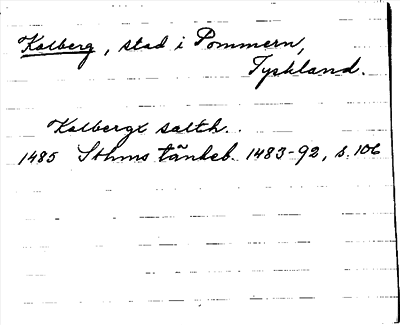 Kolberg, stad i Pommern,
Tyskland.
Kolbergx salth.
1485 Sthms tänkeb. 1483-92, s. 106